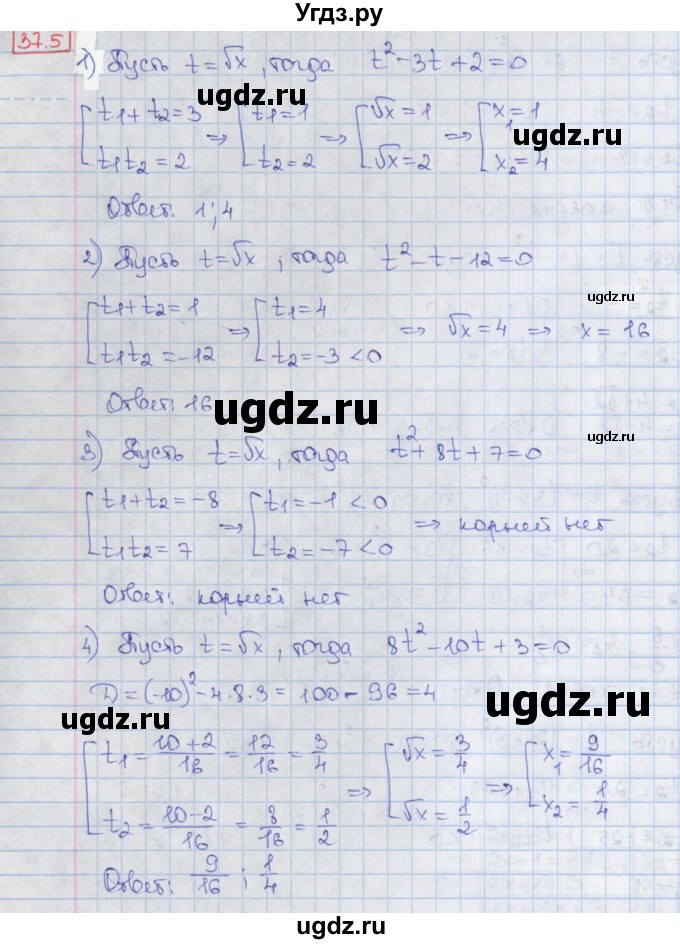 Угдз.ру
37.5
1) Пусть t=√x, тогда t²-3t+2=0
[t₁+t₂=3 ; t₁t₂=2 ⇒ [t₁=1 ; t₂=2 ⇒ [√x=1 ; √x=2 ⇒ [x₁=1 ; x₂=4
ugdz.ru
ugdz.ru
Ответ: 1; 4
2) Пусть t=√x, тогда t²-t-12=0
ugdz.ru
[t₁+t₂=1 ; t₁t₂=-12 ⇒ [t₁=4 ; t₂=-3<0 ⇒ √x=4 ⇒ x=16
Ответ: 16
ugdz.ru
ugdz.ru
3) Пусть t=√x, тогда t²+8t+7=0
[t₁+t₂=-8 ; t₁t₂=7 ⇒ [t₁=-1<0 ; t₂=-7<0 ⇒ корней нет
Ответ: корней нет
4) Пусть t=√x, тогда 8t²-10t+3=0
D=(-10)²-4·8·3=100-96=4
ugdz.ru
ugdz.ru
[t₁=(10+2)/16=12/16=3/4 ; t₂=(10-2)/16=8/16=1/2 ⇒ [√x=3/4 ; √x=1/2 ⇒ [x₁=9/16 ; x₂=1/4
Ответ: 9/16; 1/4
ugdz.ru
ugdz.ru